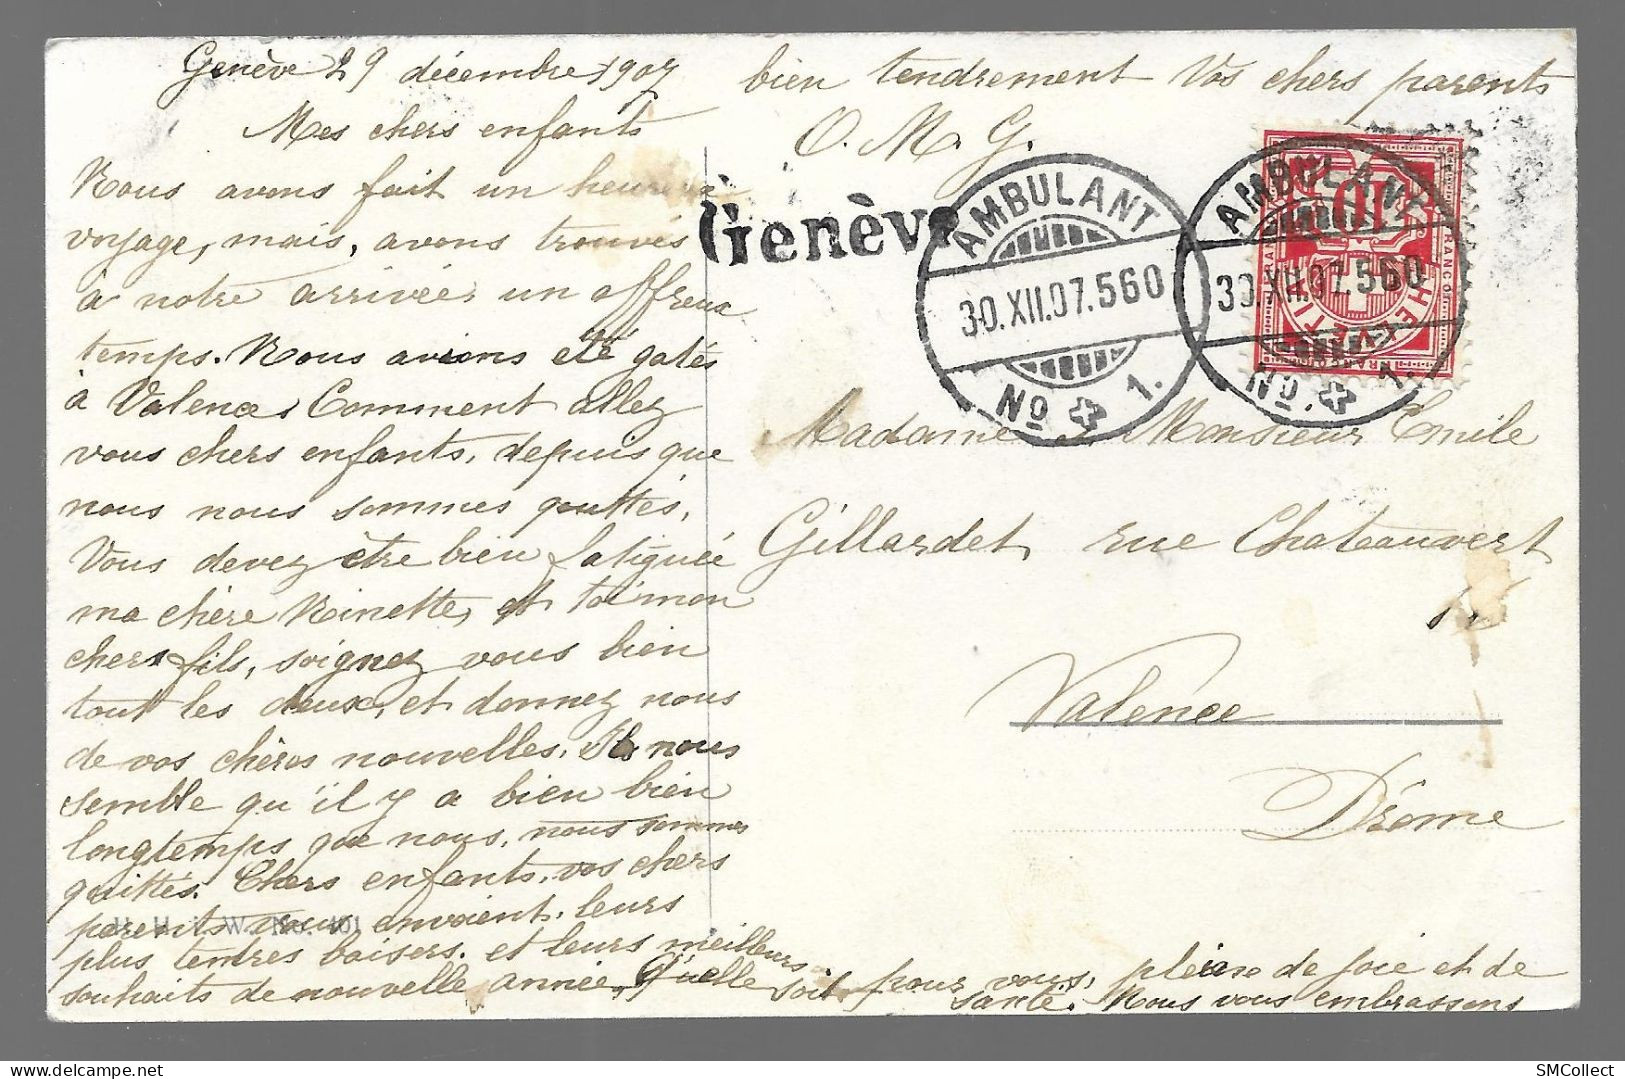 Genève 29 décembre 1907
Mes chers enfants
Nous avons fait un heureux
voyage, mais, avons trouvés
à notre arrivée, un affreux
temps. Nous avions été gatés
à Valence, Comment allez
vous chers enfants, depuis que
nous nous sommes quittés,
Vous devez être bien fatiguée
ma chère Ninette, et toi mon
cher fils, soignez vous bien
tout les deux, et donnez nous
de vos chères nouvelles. Il nous
semble qu'il y a bien bien
longtemps que nous, nous sommes
quittés. Chers enfants, vos chers
parents vous envoient, leurs
plus tendres baisers, et leurs meilleurs
souhaits de nouvelle année, Qu'elle soit pour vous, pleine de joie et de
santé. Nous vous embrassons
bien tendrement Vos chers parents
O. M. G.
Genève
AMBULANT
30.XII.07.560
No 1.
AMBULANT
30.XII.07.560
No. 1.
10
HELVETIA
FRANCO
Madame & Monsieur Emile
Gillardet, rue Chateauvert
Valence
Drôme
No. 401
SMCollect